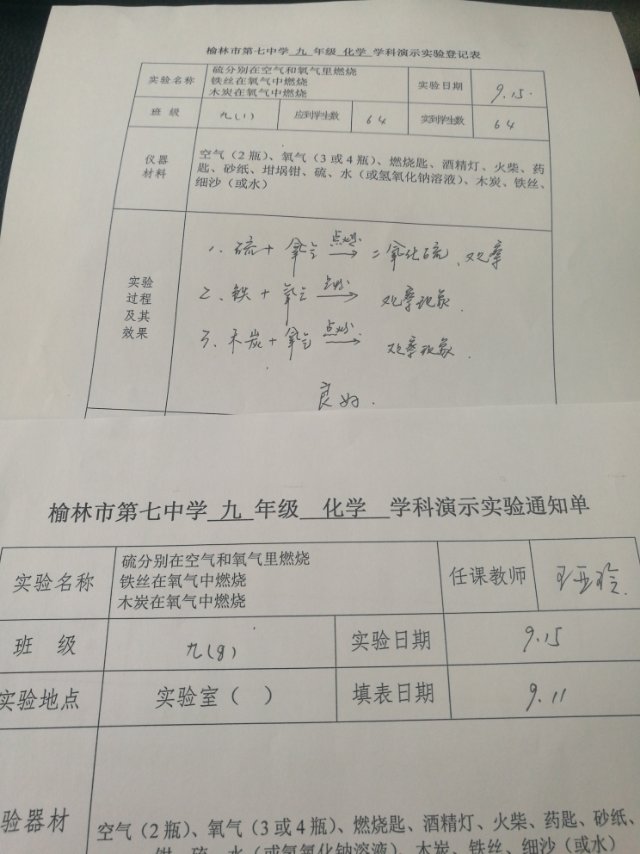 榆林市第七中学 九 年级 化学 学科演示实验登记表
实验名称
硫分别在空气和氧气里燃烧
铁丝在氧气中燃烧
木炭在氧气中燃烧
实验日期 9.15.
班 级 九(1) 应到学生数 64 实到学生数 64
仪器
材料
空气（2瓶）、氧气（3或4瓶）、燃烧匙、酒精灯、火柴、药
匙、砂纸、坩埚钳、硫、水（或氢氧化钠溶液）、木炭、铁丝、
细沙（或水）
实验
过程
及其
效果
1. 硫 + 氧气 点燃 → 二氧化硫、观察
2. 铁 + 氧气 点燃 → 观察现象
3. 木炭 + 氧气 点燃 → 观察现象.
良好.
榆林市第七中学 九 年级 化学 学科演示实验通知单
实验名称
硫分别在空气和氧气里燃烧
铁丝在氧气中燃烧
木炭在氧气中燃烧
任课教师 王亚玲
班 级 九(8) 实验日期 9.15
实验地点 实验室（ ） 填表日期 9.11
验器材
空气（2瓶）、氧气（3或4瓶）、燃烧匙、酒精灯、火柴、药匙、砂纸、
钳、硫、水（或氢氧化钠溶液）、木炭、铁丝、细沙（或水）